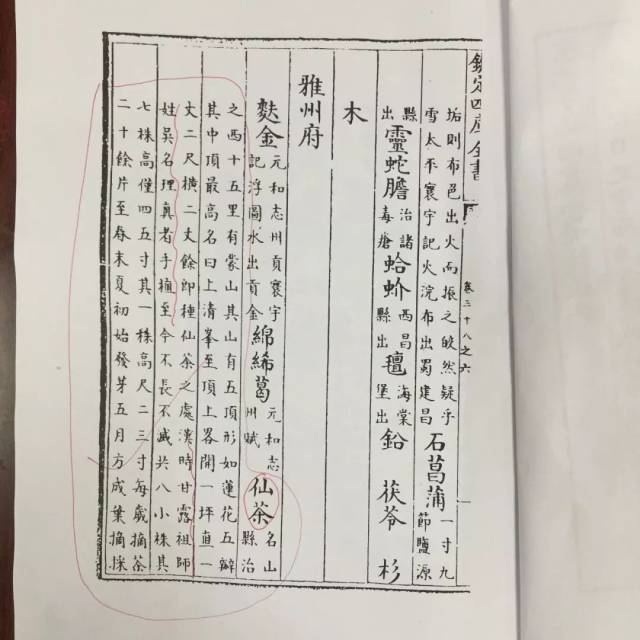 欽定四庫全書
卷三十八之六
垢則布邑出火而振之皎然疑乎
雪太平寰宇記火浣布出蜀建昌
石菖蒲 一寸九節鹽源
縣出 靈蛇膽 治諸毒瘡 蛤蚧 西昌縣出 氊 海棠堡出 鉛 茯苓 杉
木
雅州府
麩金 元和志州貢寰宇記浮圖水出貢金 綿絺葛 元和志州賦 仙茶 名山縣治
之西十五里有蒙山其山有五頂形如蓮花五瓣
其中頂最高名曰上清峯至頂上畧開一坪直一
丈二尺橫二丈餘即種仙茶之處漢時甘露祖師
姓吳名理真者手植至今不長不滅共八小株其
七株高僅四五寸其一株高尺二三寸每歲摘茶
二十餘片至春末夏初始發芽五月方成葉摘採